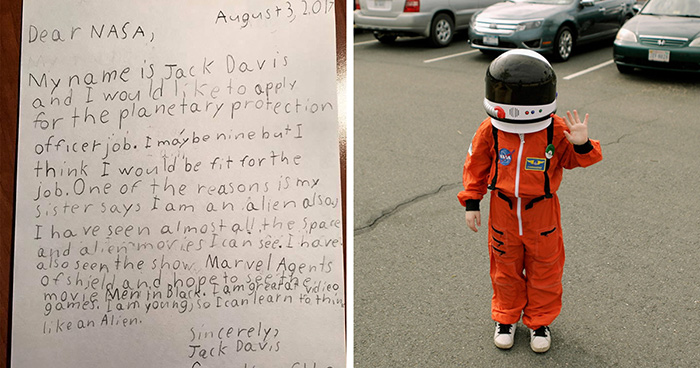 August 3, 201
Dear NASA,
My name is Jack Davis
and I would like to apply
for the planetary protection
officer job. I maybe nine but I
think I would be fit for the
job. One of the reasons is my
sister says I am an alien also,
I have seen almost all the space
and alien movies I can see. I have
also seen the show Marvel Agents
of shield and hope to see the
movie Men in Black. I am great at vidieo
games. I am young, so I can learn to thin
like an Alien.
Sincerely,
Jack Davis
NASA